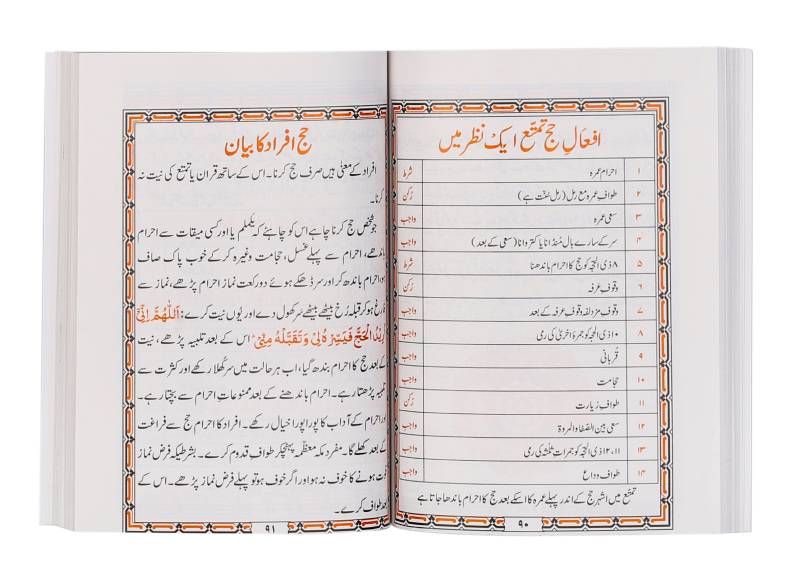 افعالِ حج تمتّع ایک نظر میں
۱ احرام عمرہ شرط
۲ طواف عمرہ مع رمل (رمل سنّت ہے) رُکن
۳ سعی عمرہ واجب
۴ سر کے سارے بال منڈانا یا کتروانا (سعی کے بعد) واجب
۵ ۸ ذی الحجہ کو حج کا احرام باندھنا شرط
۶ وقوف عرفہ رُکن
۷ وقوف مزدلفہ وقوف عرفہ کے بعد واجب
۸ ۱۰ ذی الحجہ کو جمرۂ اخریٰ کی رمی واجب
۹ قُربانی واجب
۱۰ حجامت واجب
۱۱ طواف زیارت رُکن
۱۲ سعی بین الصّفا و المروۃ واجب
۱۳ ۱۱، ۱۲ ذی الحجہ کو جمرات ثلٰثہ کی رمی واجب
۱۴ طواف وداع واجب
تمتع میں اشہر حج کے اندر پہلے عمرہ کا اسکے بعد حج کا احرام باندھا جاتا ہے
۹۰
حج افراد کا بیان
افراد کے معنٰی ہیں صرف حج کرنا۔ اس کے ساتھ قران یا تمتع کی نیت نہ
کرنا۔
جو شخص حج کرنا چاہے اس کو چاہئے کہ یلملم یا اور کسی میقات سے احرام
باندھے، احرام سے پہلے غسل، حجامت وغیرہ کر کے خوب پاک صاف
ہو، احرام باندھ کر اور سر ڈھکے ہوئے دو رکعت نماز احرام پڑھے، نماز سے
فارغ ہو کر قبلہ رُخ بیٹھے بیٹھے سر کھول دے اور یوں نیت کرے: اَللّٰھُمَّ اِنِّیْ
اُرِیْدُ الْحَجَّ فَیَسِّرْہُ لِیْ وَتَقَبَّلْہُ مِنِّیْ اس کے بعد تلبیہ پڑھے، نیت
کے بعد حج کا احرام بندھ گیا، اب ہر حالت میں سر کُھلا رکھے اور کثرت سے
تلبیہ پڑھتا رہے۔ احرام باندھنے کے بعد ممنوعاتِ احرام سے بچتا رہے۔
اور احرام کے آداب کا پورا پورا خیال رکھے۔ افراد کا احرام حج سے فراغت
کے بعد کھلے گا۔ مفرد مکہ معظّمہ پہنچکر طوافِ قدوم کرے۔ بشرطیکہ فرض نماز
فوت ہونے کا خوف نہ ہو اور اگر خوف ہو تو پہلے فرض نماز پڑھے۔ اس کے
بعد طواف کرے۔
۹۱